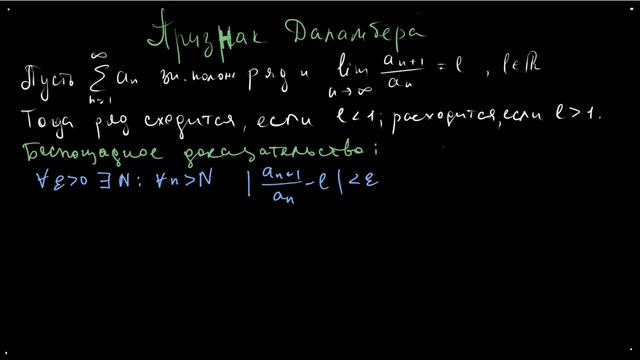 Признак Даламбера
Пусть ∞ ∑ n=1 aₙ зн. полож ряд и lim n→∞ aₙ₊₁/aₙ = l, l∈ℝ
Тогда ряд сходится, если l<1; расходится, если l>1.
Беспощадное доказательство:
∀ε>0 ∃N: ∀n>N |aₙ₊₁/aₙ - l|<ε